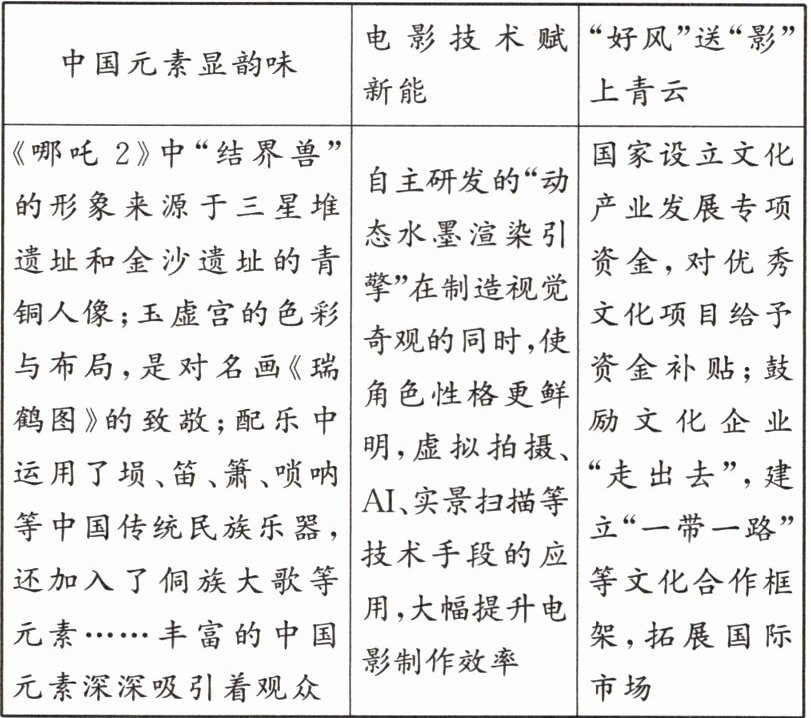 中国元素显韵味
电影技术赋
新能
“好风”送“影”
上青云
《哪吒 2》中“结界兽”
的形象来源于三星堆
遗址和金沙遗址的青
铜人像;玉虚宫的色彩
与布局,是对名画《瑞
鹤图》的致敬;配乐中
运用了埙、笛、箫、唢呐
等中国传统民族乐器,
还加入了侗族大歌等
元素……丰富的中国
元素深深吸引着观众
自主研发的“动
态水墨渲染引
擎”在制造视觉
奇观的同时,使
角色性格更鲜
明,虚拟拍摄、
AI、实景扫描等
技术手段的应
用,大幅提升电
影制作效率
国家设立文化
产业发展专项
资金,对优秀
文化项目给予
资金补贴;鼓
励文化企业
“走出去”,建
立“一带一路”
等文化合作框
架,拓展国际
市场